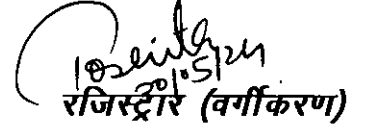 20/05/24
रजिस्ट्रार (वर्गीकरण)